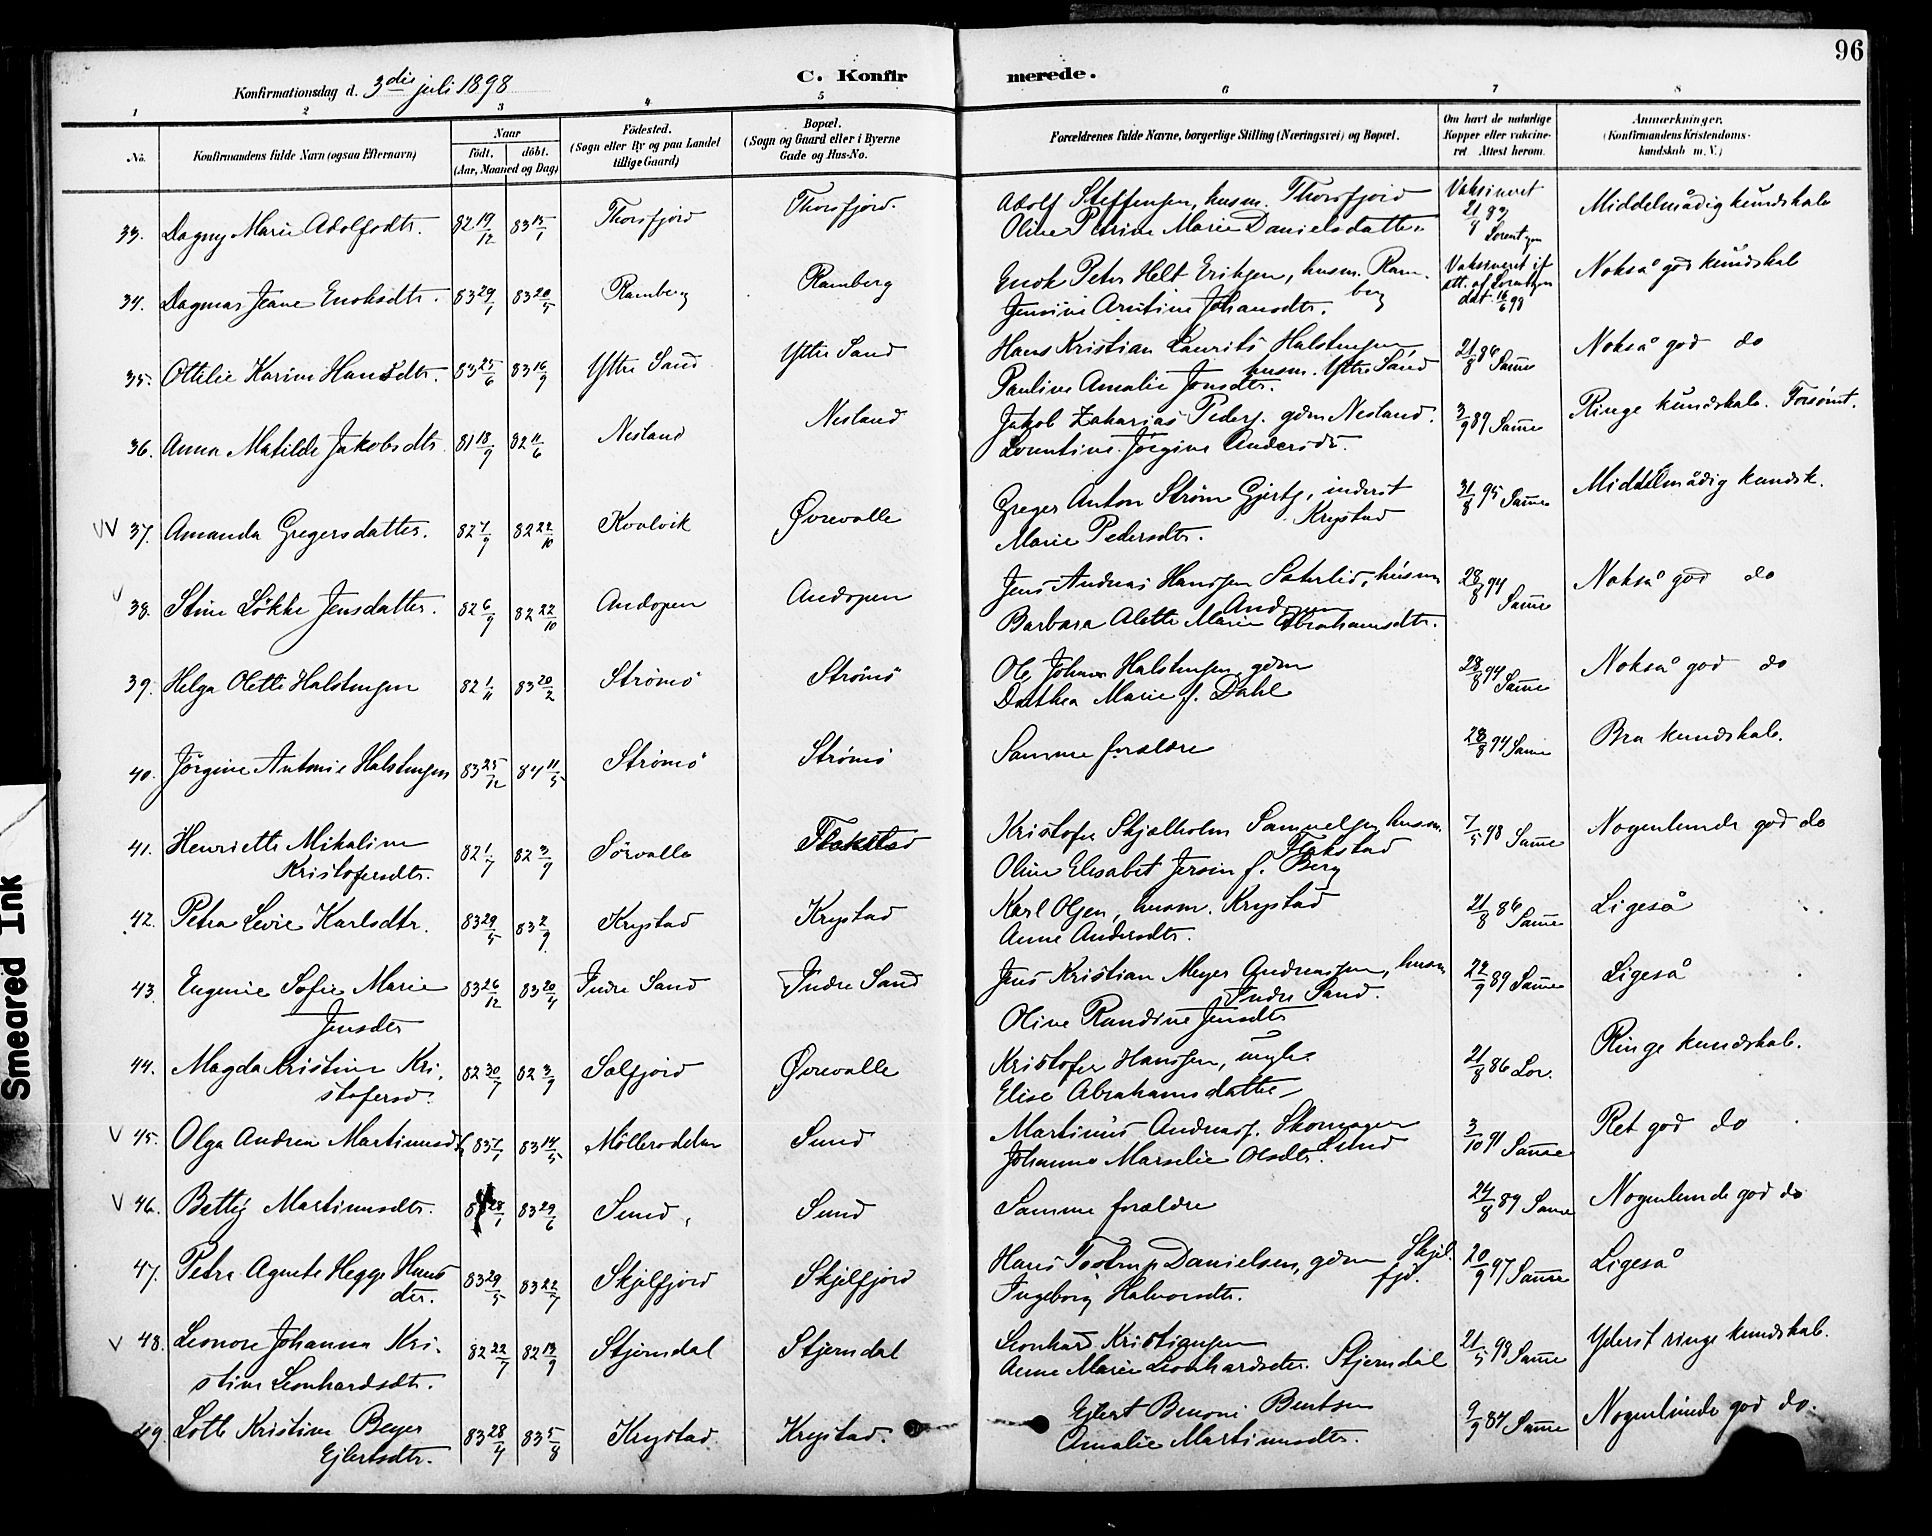 96
Konfirmationsdag d. 3die juli 1898
C. Konfir merede.
1 2 3 4 5 6 7 8
No. Konfirmandens fulde Navn (ogsaa Efternavn) Naar födt. döbt. (Aar, Maaned og Dag) Födested. (Sogn eller By og paa Landet tillige Gaard) Bopæl. (Sogn og Gaard eller i Byerne Gade og Hus-No. Forældrenes fulde Navne, borgerlige Stilling (Næringsvei) og Bopæl. Om havt de naturlige Kopper eller vakcineret Attest herom. Anmærkninger. (Konfirmandens Kristendomskundskab m. V.)
33. Dagny Marie Adolfsdtr. 82 19/12 83 15/1 Thorsfjord Thorsfjord. Adolf Steffensen, husm. Thorsfjord Vaksineret 21/9 83 Lorentzen Middelmådig kundskab
Oline Petrine Marie Danielsdatter
34. Dagmar Jeane Enoksdtr. 83 29/1 83 20/5 Ramberg Ramberg Enok Peter Helt Eriksen, husm. Ramberg Vaksineret if att. af Lorentzen dat. 16/6 98 Nokså god kundskab
Jensine Arntine Johansdtr.
35. Ottilie Karine Hansdtr. 83 25/6 83 16/9 Yttre Sand Yttre Sand Hans Kristian Laurits Halstensen husm. Yttre Sand 21/8 86 Samme Nokså god do
Pauline Amalie Jonsdtr.
36. Anna Matilde Jakobsdtr. 81 18/9 82 11/6 Nesland Nesland Jakob Zakarias Peders. gdm Nesland. 3/9 89 Samme Ringe kundskab. Forsömt.
Lorentine Jörgine Andersdtr.
37. Amanda Gregersdatter. 82 7/9 82 22/10 Kvalvik Øvrevalle Greger Anton Ström Gjerts., inderst Krystad 31/8 95 Samme Middelmådig kundsk.
Marie Pedersdtr.
38. Stine Lökke Jensdatter. 82 6/9 82 22/10 Andopen Andopen Jens Andreas Hanssen Sæterlid, husm Andopen 28/8 94 Samme Nokså god do
Barbara Alette Marie Abrahamsdtr.
39. Helga Olette Halstensen 82 1/11 83 20/2 Strömö Strömö Ole Johan Halstensen, gdm 28/8 94 Samme Nokså god do
Dorthea Marie f. Dahl
40. Jörgine Antonie Halstensen 83 25/12 84 11/5 Strömö Strömö Samme forældre 28/8 94 Samme Bra kundskab.
41. Henriette Mikaline Kristofersdtr. 82 1/7 82 3/9 Sörvalle Flakstad Kristofer Skjælholm Samuelsen husm. Flakstad 7/5 98 Samme Nogenlunde god do
Oline Elisabet Jersin f. Berg
42. Petra Levie Karlsdtr. 83 29/5 83 2/9 Krystad Krystad Karl Olsen, husm. Krystad 21/8 86 Samme Ligeså
Anne Andersdtr.
43. Eugenie Sofie Marie Jensdtr 83 26/12 83 20/4 Indre Sand Indre Sand Jens Kristian Meyer Andreassen, husm Indre Sand. 22/9 89 Samme Ligeså
Oline Randine Jensdtr
44. Magda Kristine Kristofersd. 82 30/7 82 3/9 Solfjord Øvrevalle Kristofer Hanssen, ungk. 21/8 86 Lor. Ringe kundskab.
Elise Abrahamsdatter
45. Olga Andrea Martinusdtr 83 1/1 83 14/5 Möllerodden Sund Martinus Andreass. Skomager Sund 3/10 91 Samme Ret god do
Johanna Marselie Olsdtr.
46. Betty Martinusdtr. 28/1 83 29/6 Sund Sund Samme forældre 24/8 89 Samme Nogenlunde god do
47. Petra Agnete Hegge Hansdtr. 83 29/5 83 22/7 Skjelfjord Skjelfjord Hans Tostrup Danielsen, gdm Skjelfjd. 20/9 97 Samme Ligeså
Ingeborg Halvorsdtr.
48. Leonore Johanna Kristine Leonhardsdtr. 82 22/7 82 13/9 Stjerndal Stjerndal Leonhard Kristiansen 21/5 98 Samme Yderst ringe kundskab.
Anne Marie Leonhardsdtr. Stjerndal
49. Lotte Kristine Beyer Ejlertsdtr. 83 28/4 83 5/8 Krystad Krystad. Ejlert Benoni Bentsen 9/9 84 Samme Nogenlunde god do.
Amalie Martinusdtr.
Smeared Ink